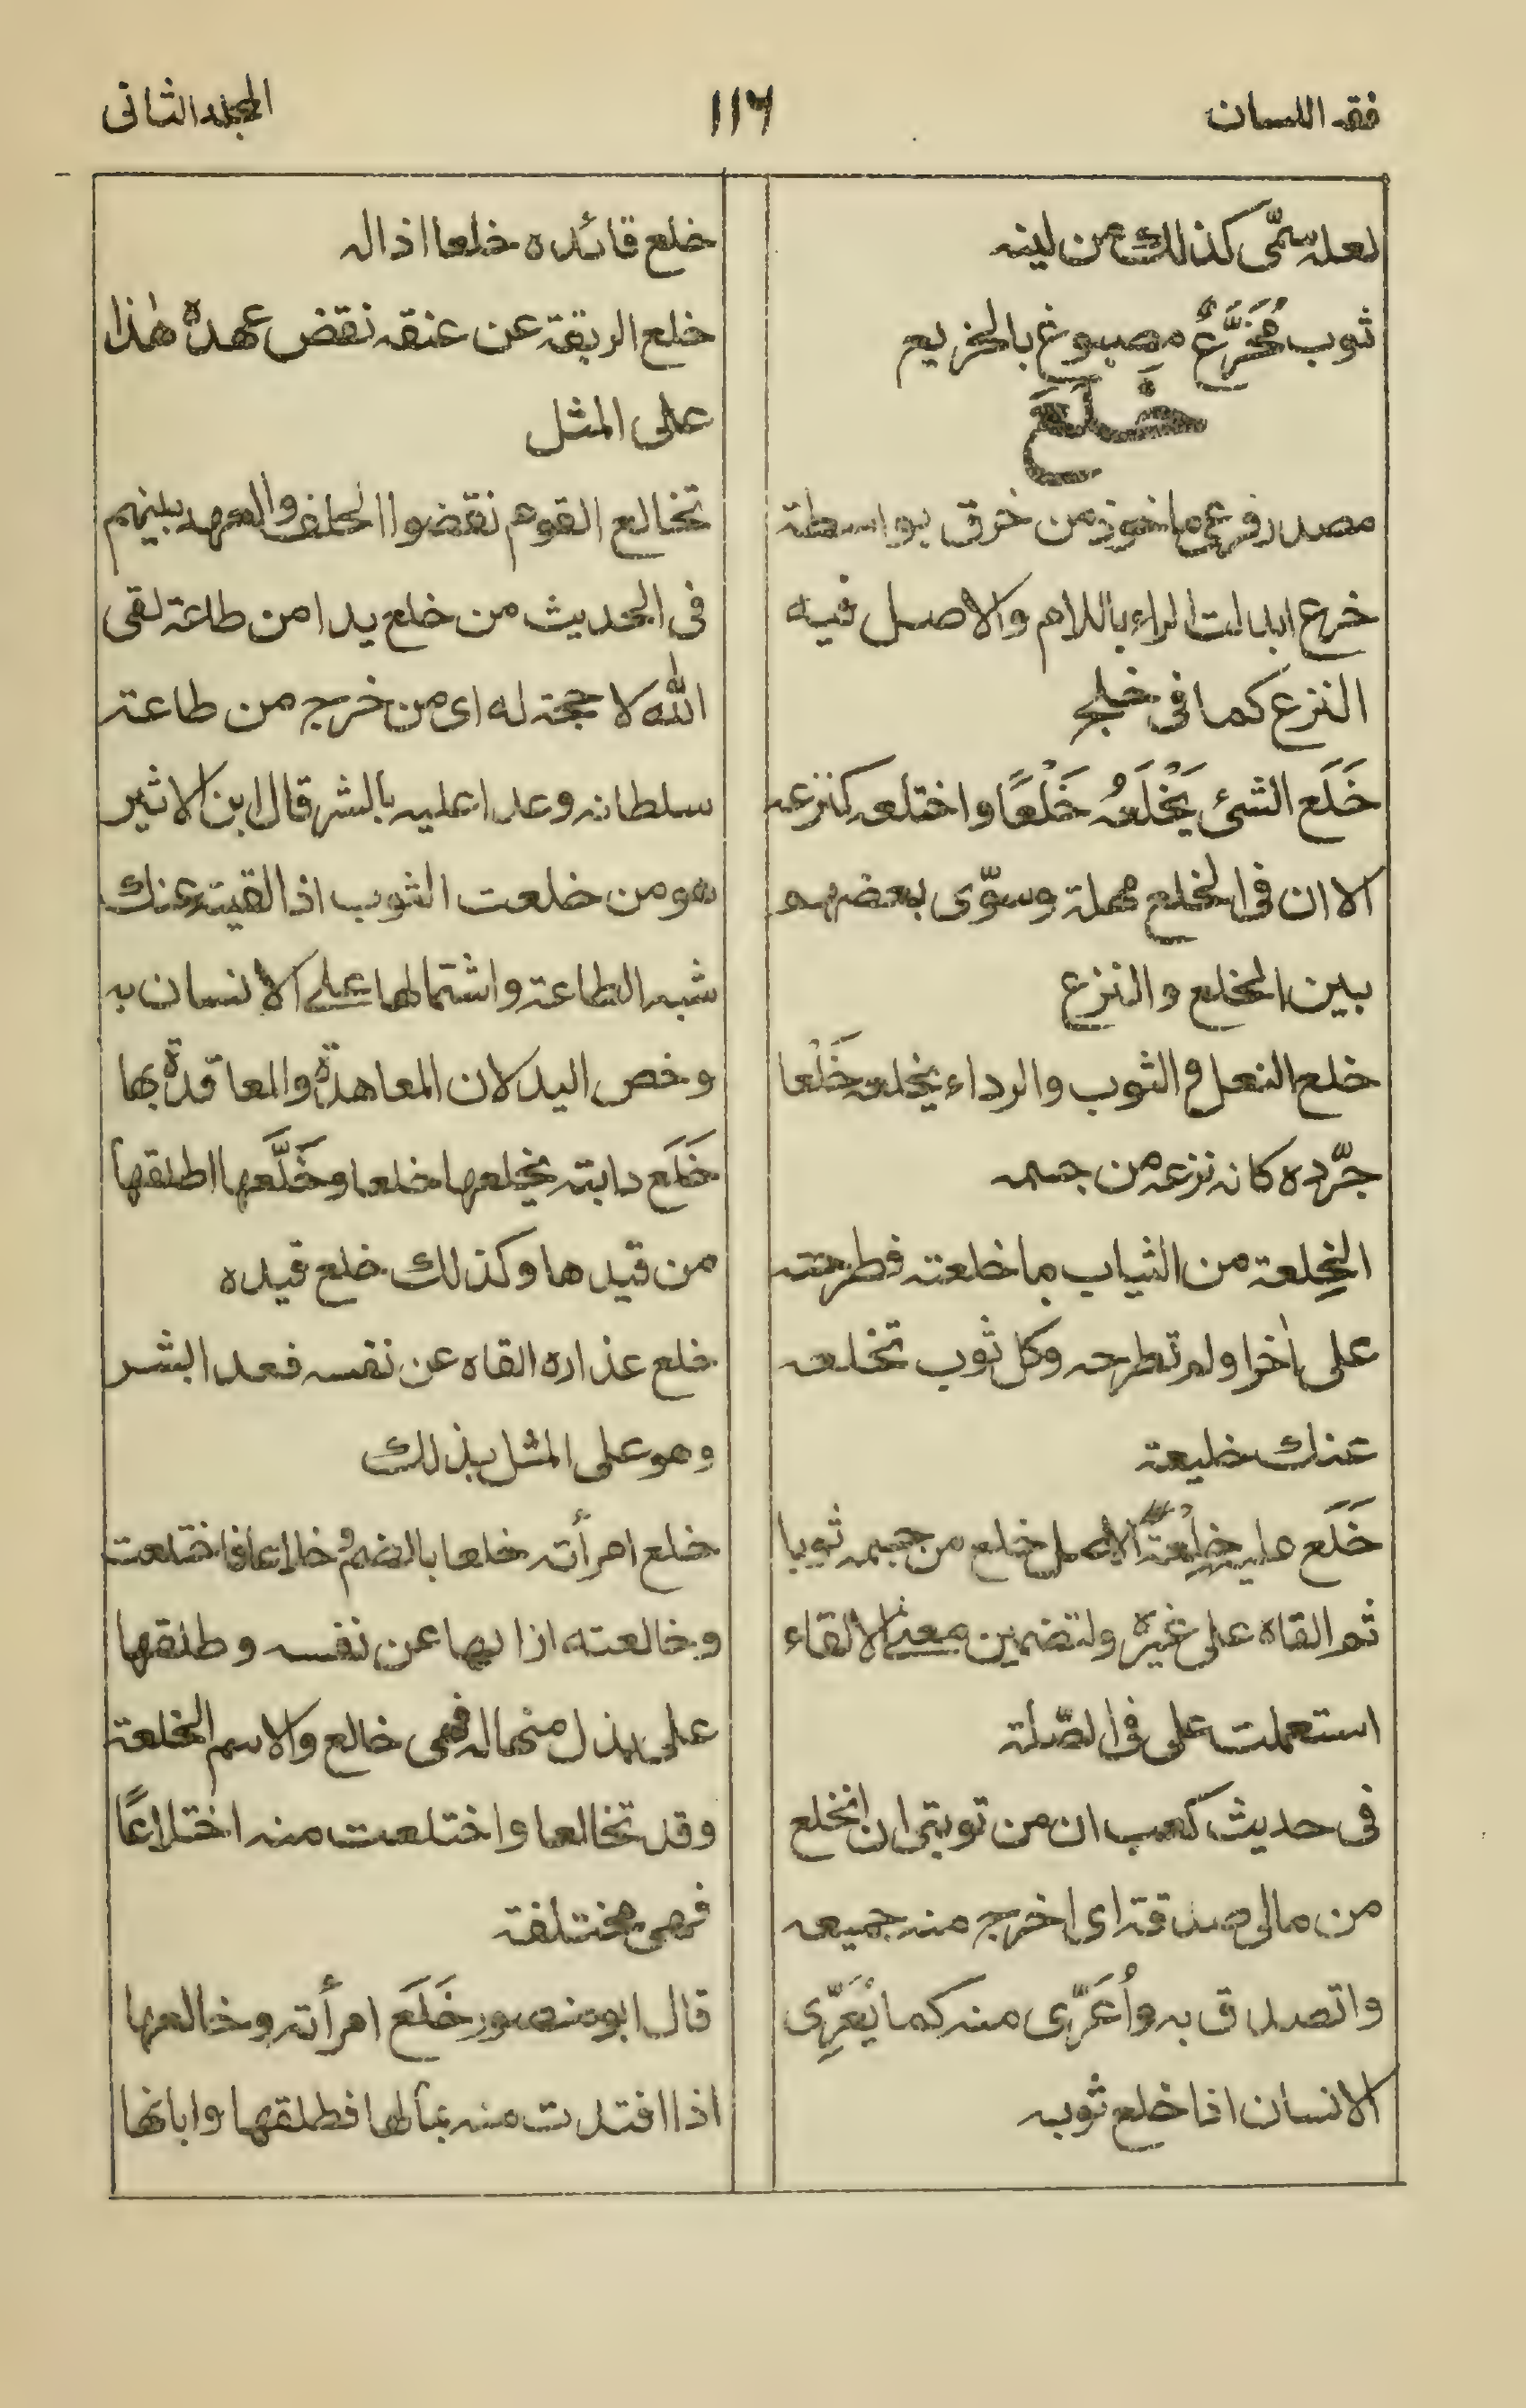 فقه اللسان
١١٦
المجلد الثانى
لعله سمّى كذلك من لينه
ثوب مُخَرَّعٌ مصبوغ بالخريع
خَلَعَ
مصدر فرعى ماخوذ من خرق بواسطة
خرع ابدلت الراء باللام والاصل فيه
النزع كما فى خلج
خَلَع الشئ يَخْلَعُه خَلْعًا واختلعه كنزعه
الا ان فى الخلع مهلة وسوّى بعضهم
بين الخلع والنزع
خلع النعل و الثوب والرداء يخلعه خَلْعا
جرّده كانه نزعه من جسمه
الخِلعة من الثياب ما خلعته فطرحته
على اٰخر او لم تطرحه وكل ثوب تخلعه
عنك خليعة
خَلَع عليه خِلْعةً الاصل خلع من جسمه ثوبا
ثم القاه على غيره ولتضمين معنى الالقاء
استعملت على فى الصّلة
فى حديث كعب ان من توبتى ان انخلع
من مالى صدقة اى اخرج منه جميعه
واتصدق به واُعَرَّى منه كما يُعَرِّى
الانسان اذا خلع ثوبه
خلع قائده خلعا اذاله
خلع الربقة عن عنقه نقض عهدهٗ هٰذا
على المثل
تخالع القوم نقضوا الحلف والعهد بينهم
فى الحديث من خلع يدا من طاعة لقى
الله لا حجة له اى من خرج من طاعة
سلطانه وعدا عليه بالشر قال ابن الاثير
هو من خلعت الثوب اذا القيته عنك
شبه الطاعة واشتمالها على الانسان به
وخص اليد لان المعاهدة والمعاقدة بها
خَلَع دابته يخلعها خلعا وخَلَّعها اطلقها
من قيدها وكذلك خلع قيده
خلع عذاره القاه عن نفسه فعدا بشر
وهو على المثل بذلك
خلع امرأته خلعا بالضم و خلاعا فاختلعت
وخالعته ازالها عن نفسه وطلقها
على بذل منها له فهى خالع والاسم الخلعة
وقد تخالعا واختلعت منه اختلاعًا
فهى مختلفة
قال ابو منصور خَلَع امرأته وخالعها
اذا افتدت منه بمالها فطلقها وابانها